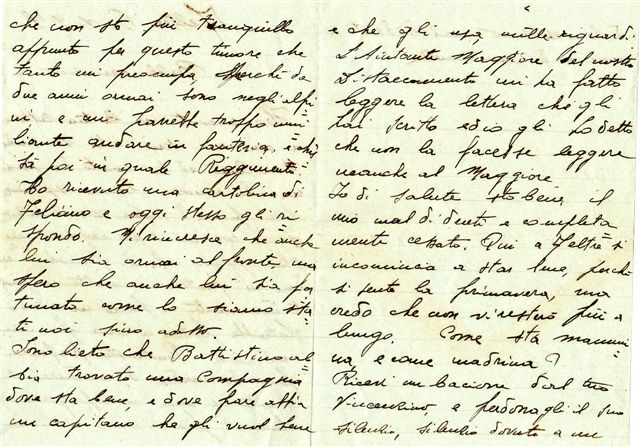 che non sto più tranquillo
appunto per questo timore che
tanto mi preoccupa, perchè da
due anni ormai sono negli alpi=
ni e mi sarebbe troppo umi=
liante andare in fanteria, e chi
sa poi in quale Reggimento=
Ho ricevuto una cartolina di
Feliano e oggi stesso gli ri=
spondo. Mi rincresce che anche
lui sia ormai al fronte, ma
spero che anche lui sia for=
tunato come lo siamo sta=
ti noi sino adesso.
Sono lieto che Battistino ab=
bia trovato una Compagnia
dove sta bene, e dove pare abbia
un capitano che gli vuol bene
e che gli usa mille riguardi.
L'Aiutante Maggiore del nostro
Distaccamento mi ha fatto
leggere la lettera che gli
hai scritto ed io gli ho detto
che non la facesse leggere
neanche al Maggiore.
Io di salute sto bene, il
mio mal di denti è completa=
mente cessato. Qui a Feltre si
incomincia a star bene, perchè
si sente la primavera, ma
credo che non vi resterò più a
lungo. Come sta mammi=
na e come madrina?
Ricevi un bacione dal tuo
Vincenzino, e perdonagli il suo
silenzio, silenzio dovuto a un